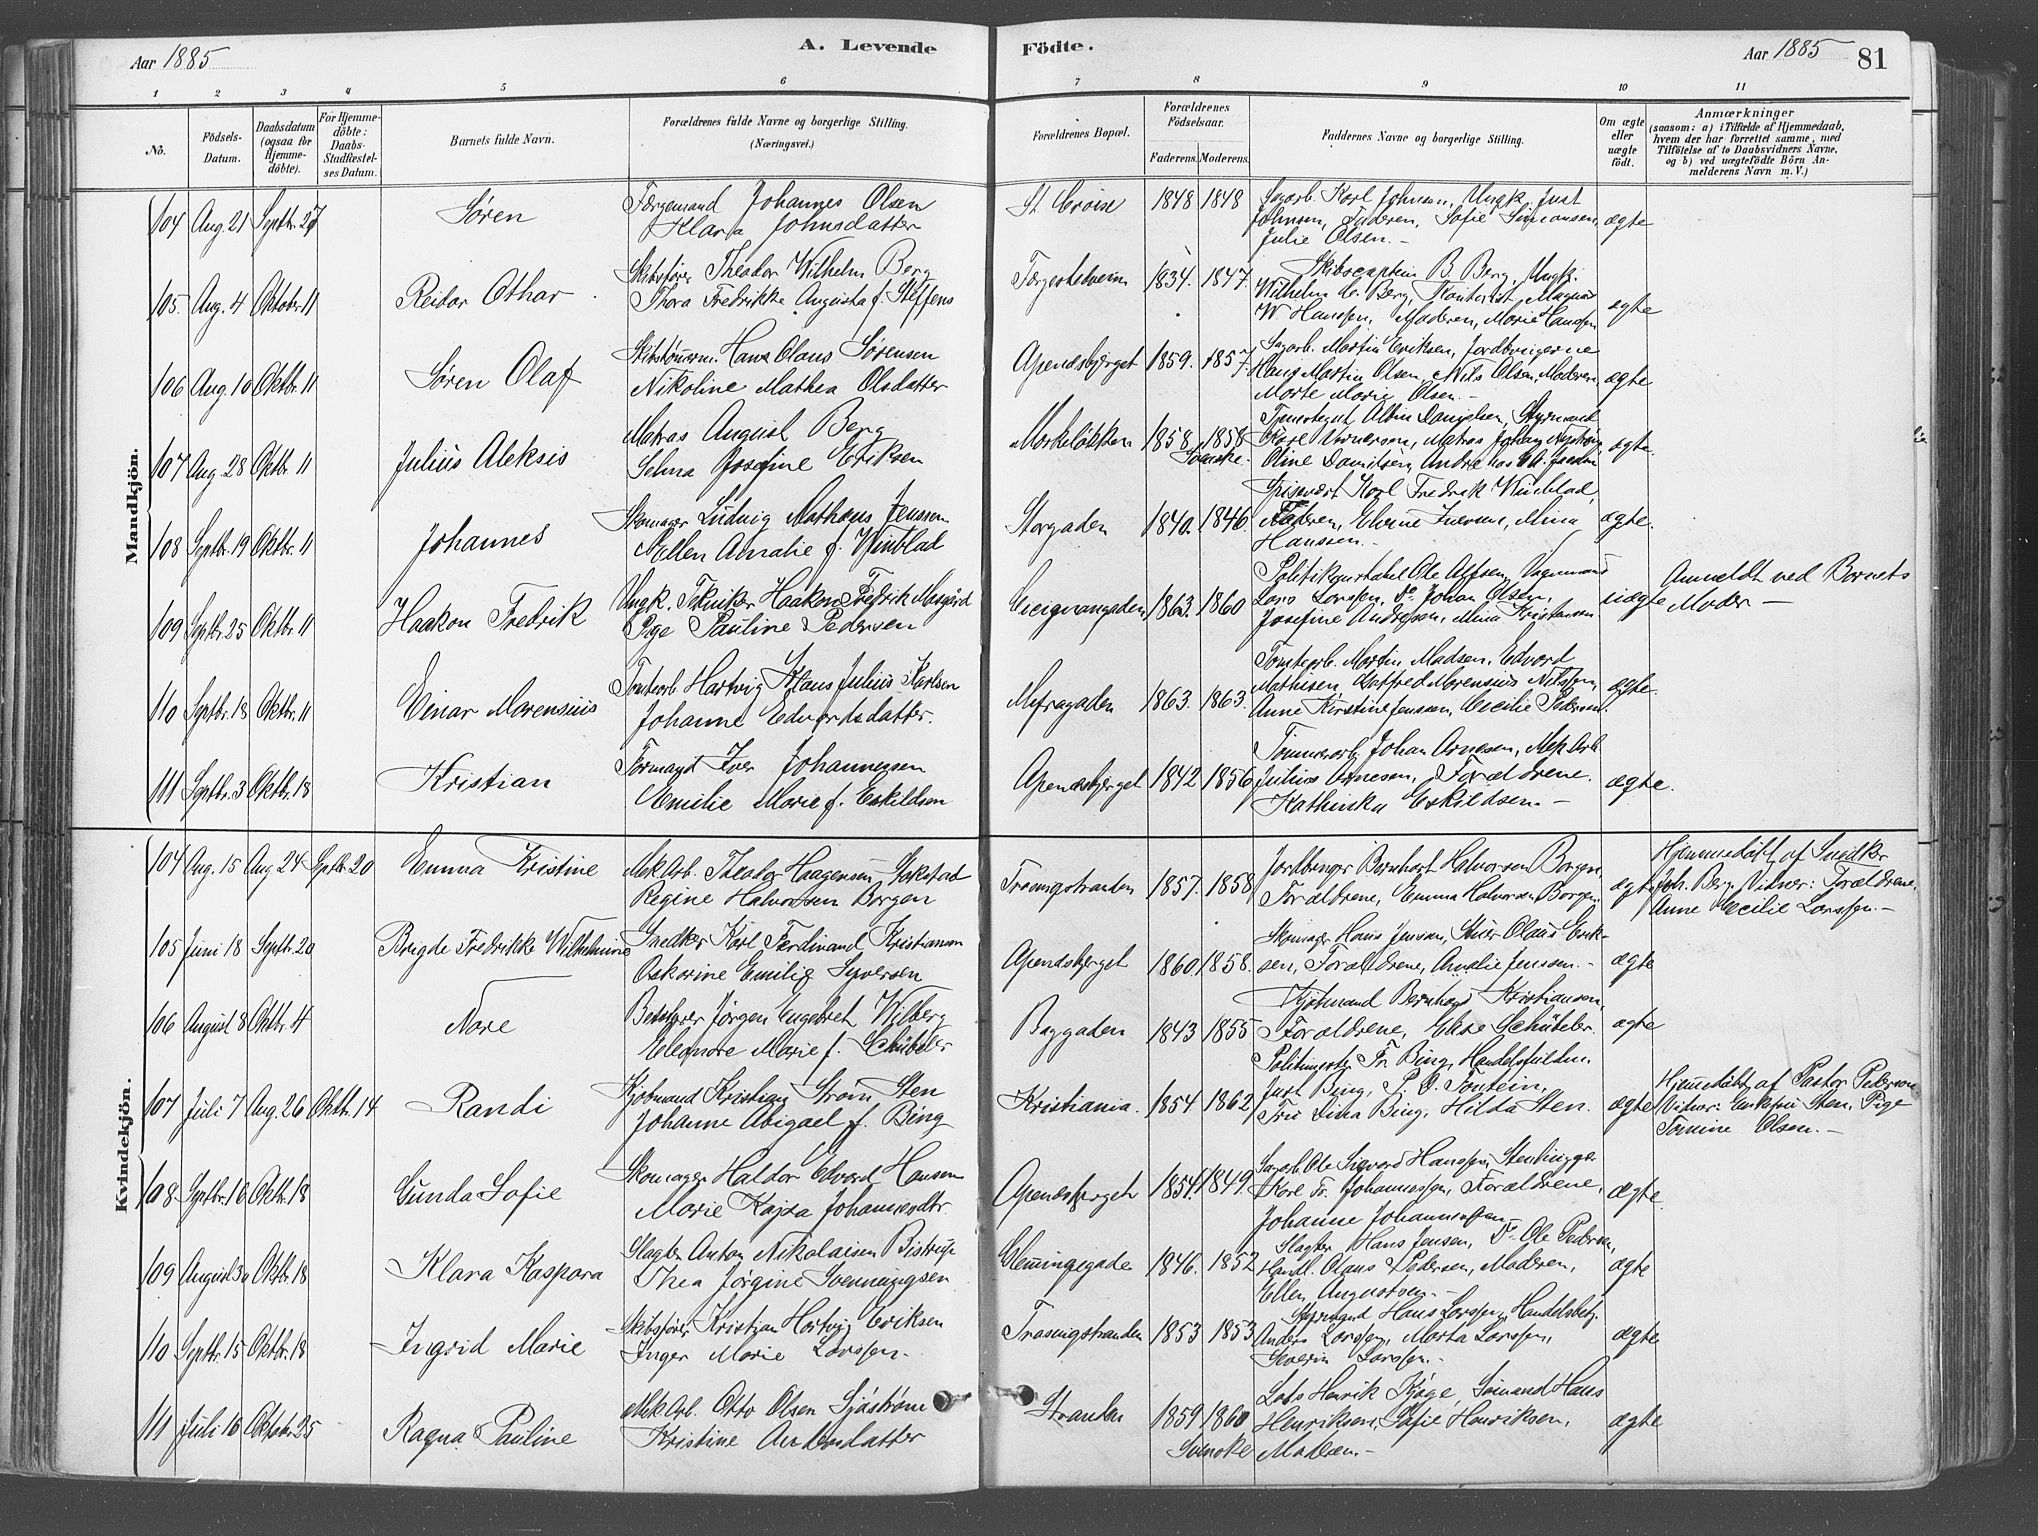 Aar 1885
A. Levende
Födte.
Aar 1885
81
1 2 3 4 5 6 7 8 9 10 11
No.
Födsels-Datum.
Daabsdatum (ogsaa for Hjemmedöbte).
For Hjemmedöbte: Daabs-Stadfæstelses Datum.
Barnets fulde Navn.
Forældrenes fulde Navne og borgerlige Stilling.
(Næringsvei.)
Forældrenes Bopæl.
Forældrenes Födselsaar.
Faderens. Moderens.
Faddernes Navne og borgerlige Stilling.
Om ægte eller uægte födt.
Anmærkninger
(saasom: a) i Tilfælde af Hjemmedaab,
hvem der har forrettet samme, med
Tilföielse af to Daabsvidners Navne,
og b) ved uægtefödte Börn Anmelderens Navn m. V.)
Mandkjön.
104 Aug. 21 Septbr. 27 Søren
Færgemand Johannes Olsen
Klara Johnsdatter
St. Croix 1848 1848
Sagarb. Karl Johnsen, Ungk. Just
Johnsen, Faderen, Sofie Simonsen,
Julie Olsen.-
ægte
105 Aug. 4 Oktober 11 Reidar Othar
Skibsfører Theodor Wilhelm Berg
Thora Fredrikke Augusta f. Steffens
Færgestedveien 1834. 1847.
Skibscaptein B. Berg, Ungk.
Wilhelm C. Berg, Kontorist Magnus
W. Hanssen, Moderen, Marie Hanssen
ægte
106 Aug. 10 Oktbr. 11 Søren Olaf
Skibstømm. Hans Olaus Sørensen
Nikoline Mathea Olsdatter
Apendsbjerget 1859. 1857.
Sagarb. Martin Eriksen, Jordbrugerne
Hans Martin Olsen, Nils Olsen, Moderen,
Marte Marie Olsen.-
ægte
107 Aug. 28 Oktbr. 11 Julius Aleksis
Matros August Berg
Selma Josefine Eriksen
Mørkeløkken 1858 1858 Svenske.
Albin Danielsen, Styrmand
Karl, Matros Johan
Oline Danielsen, Andre hos
ægte.
108 Septbr. 19 Oktbr. 11 Johannes
Skomager Ludvig Mathæus Jenssen
Nellen Amalie f. Winblad
Storgaden 1840. 1846
Spisevært Karl Fredrik Winblad,
Faderen, Iversen, Mina
Hanssen.-
ægte.
109 Septbr. 25 Oktbr. 11 Haakon Fredrik
Ungk. Tekniker Haakon Fredrik
Pige Pauline Pedersen
1863. 1860
Politikonstabel Ole Alfsen, Vognmand
Lars Larssen, Do. Johan Olsen,
Josefine Andresen, Mina Kristiansen
uægte
Anmeldt ved Barnets
Moder -
110 Septbr. 18 Oktbr. 11 Einar Marensius
Tomtearb. Hartvig Klaus Julius Karlsen
Johanne Edvardsdatter.
Møllegaden 1863. 1863.
Tomtearb. Martin Madsen, Edvard
Mathisen, Marensius Nilssen,
Anne Kirstine Jenssen, Cecilie Pedersen.
ægte.
111 Septbr. 3 Oktbr. 18 Kristian
Iver Johannessen
Emilie Marie f. Eskildsen
Apendsbjerget 1842 1856
Tømmerarb. Johan Arnesen, Mek. Arb.
Julius Arnesen, Forældrene.
Kathinka Eskildsen.-
ægte.
Kvindekjön.
104 Aug. 15 Aug. 24 Septbr. 20 Emma Kristine
Mek. Arb. Theodor Haagensen Gokstad
Regine Halvorsen Borgen
Træsnigstranden 1857. 1858.
Jordbruger Bernhart Halvorsen Borgen,
Forældrene, Emma Halvorsen Borgen.
ægte
Hjemmedøbt af Snedker
Joh. Berg. Vidner: Forældrene,
Anne Cecilie Larssen.-
105 Juni 18 Septbr. 20 Brigde Fredrikke Wilhelmine
Snedker Karl Ferdinand Kristiansen
Oskarine Emilie Syversen
Apendsbjerget 1860 1858.
Skomager Hans Jensen, Olaus Eriksen,
Forældrene, Amalie Jensen.-
ægte
106 August 8 Oktbr. 4 Nore
Bestyrer Jørgen Engebret Wilberg
Eleonore Marie f. Schübeler
Baggaden 1843 1855
Kjøbmand Bernhard Kristiansen,
Forældrene, Elise Schübeler.
ægte
107 Juli 7 Aug. 26 Oktbr. 14 Randi
Kjøbmand Kristian Strøm Sten
Johanne Abigael f. Bing
Kristiania. 1854 1862
Politimester Fr. Bing, Handelsfuldm.
Just Bing, P. O. Tostein,
Fru Dina Bing, Hilda Sten.
ægte
Hjemmedøbt af Pastor Pedersen
Vidner: Enkefru Sten, Pige
Tomine Olsen.-
108 Septbr. 16 Oktbr. 18 Gunda Sofie
Skomager Haldor Edvard Hansen
Marie Kajsa Johannesdtr.
Apendsbjerget 1854. 1849.
Sagarb. Ole Sigvard Hanssen, Stenhugger
Karl Fr. Johannessen, Forældrene,
Johanne Johannessen
ægte.
109 August 30 Oktbr. 18 Klara Kaspara
Slagter Anton Nikolaisen Bistrup
Thea Jørgine Svenningsen
Clemmingegade 1846. 1852
Slagter Hans Jensen, Do. Ole Pedersen,
Handl. Olaus Pedersen, Moderen,
Ellen Augustsen.-
ægte
110 Septbr. 15 Oktbr. 18 Ingrid Marie
Skibsfører Kristian Hartvig Eriksen
Inger Marie Larssen.
Træsnigstranden 1853 1853
Styrmand Hans Larssen, Handelsbetj.
Anders Larssen, Marta Larssen,
Severin Larssen.-
ægte
111 Juli 16 Oktober 25 Ragna Pauline
Mek. Arb. Otto Olsen Sjøstrøm
Kristine Andersdatter
Stranden 1859 1860 Svenske
Lods Henrik Kjøge, Sømand Hans
Henriksen, Sofie Henriksen,
Moderen.-
ægte